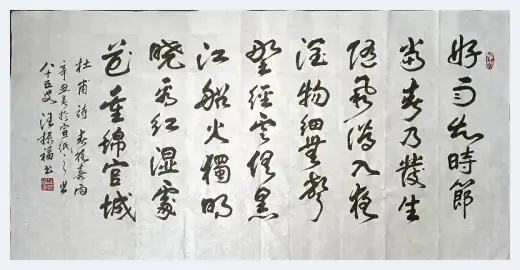 好雨知時節
當春乃發生
隨風潛入夜
潤物細無聲
野徑云俱黑
江船火獨明
曉看紅濕處
花重錦官城
杜甫詩春夜喜雨
辛丑春於宣紙之
八十五叟汪振福書